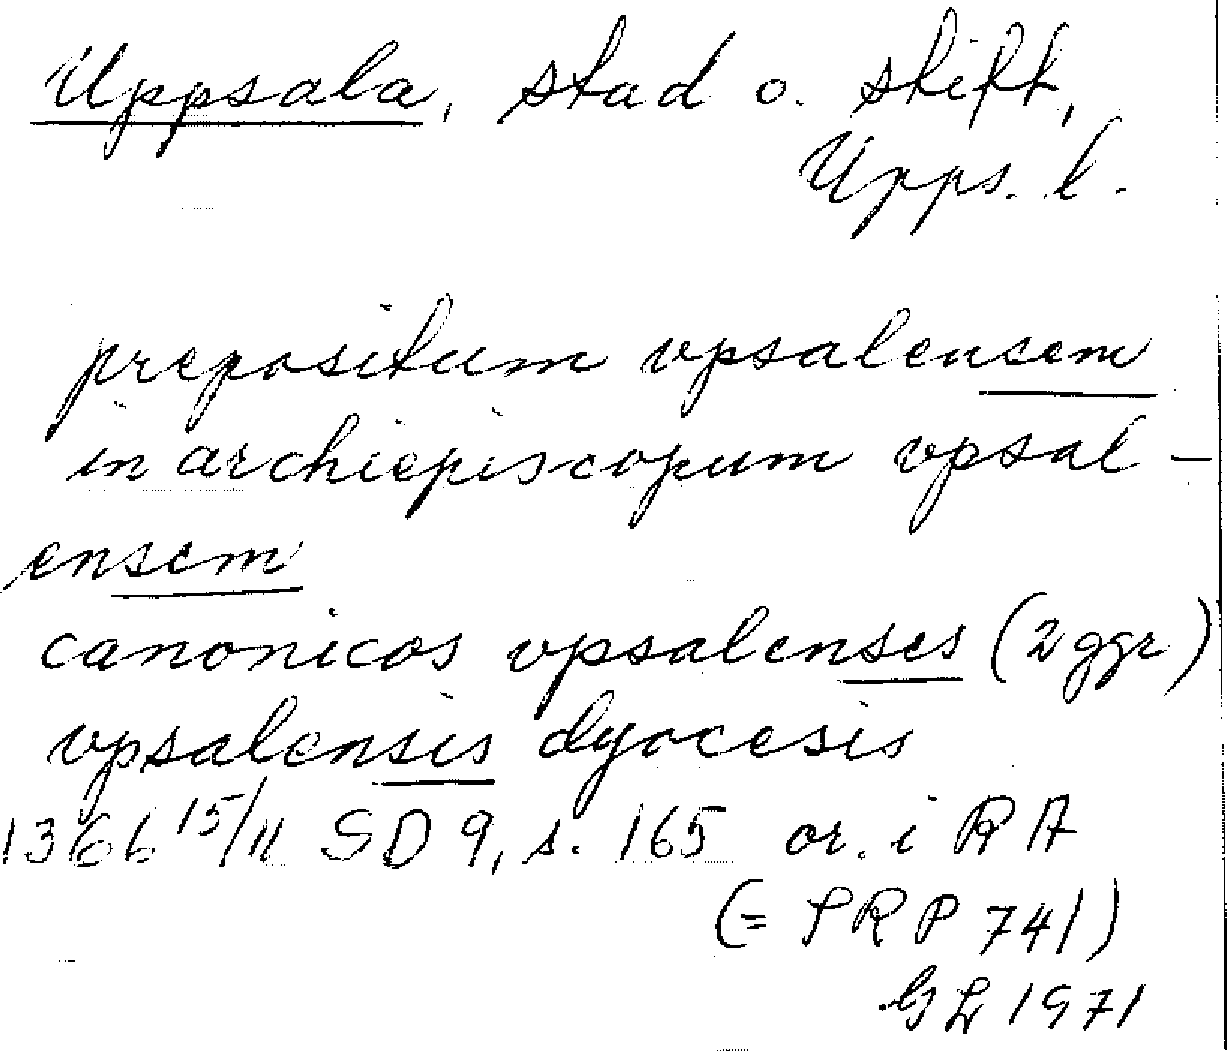 Uppsala, stad o. stift,
Upps. l.
prepositum vpsalensem
in archiepiscopum vpsal-
ensem
canonicos vpsalenses (2 ggr)
vpsalensis dyocesis
1366 15/11 SD 9, s. 165 or. i RA
(= PRP 741)
GL 1971